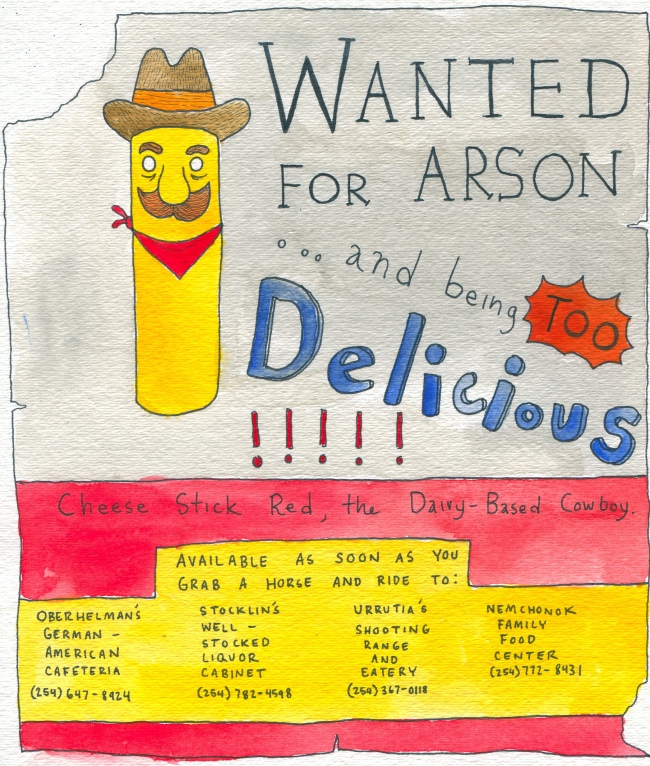 WANTED
FOR ARSON
... and being TOO
Delicious
!!!!!
Cheese Stick Red, the Dairy-Based Cowboy.
AVAILABLE AS SOON AS YOU
GRAB A HORSE AND RIDE TO:
OBERHELMAN'S
GERMAN -
AMERICAN
CAFETERIA
(254) 647-8924
STOCKLIN'S
WELL -
STOCKED
LIQUOR
CABINET
(254) 782-4598
URRUTIA'S
SHOOTING
RANGE
AND
EATERY
(254) 367-0118
NEMCHONOK
FAMILY
FOOD
CENTER
(254) 772-8431